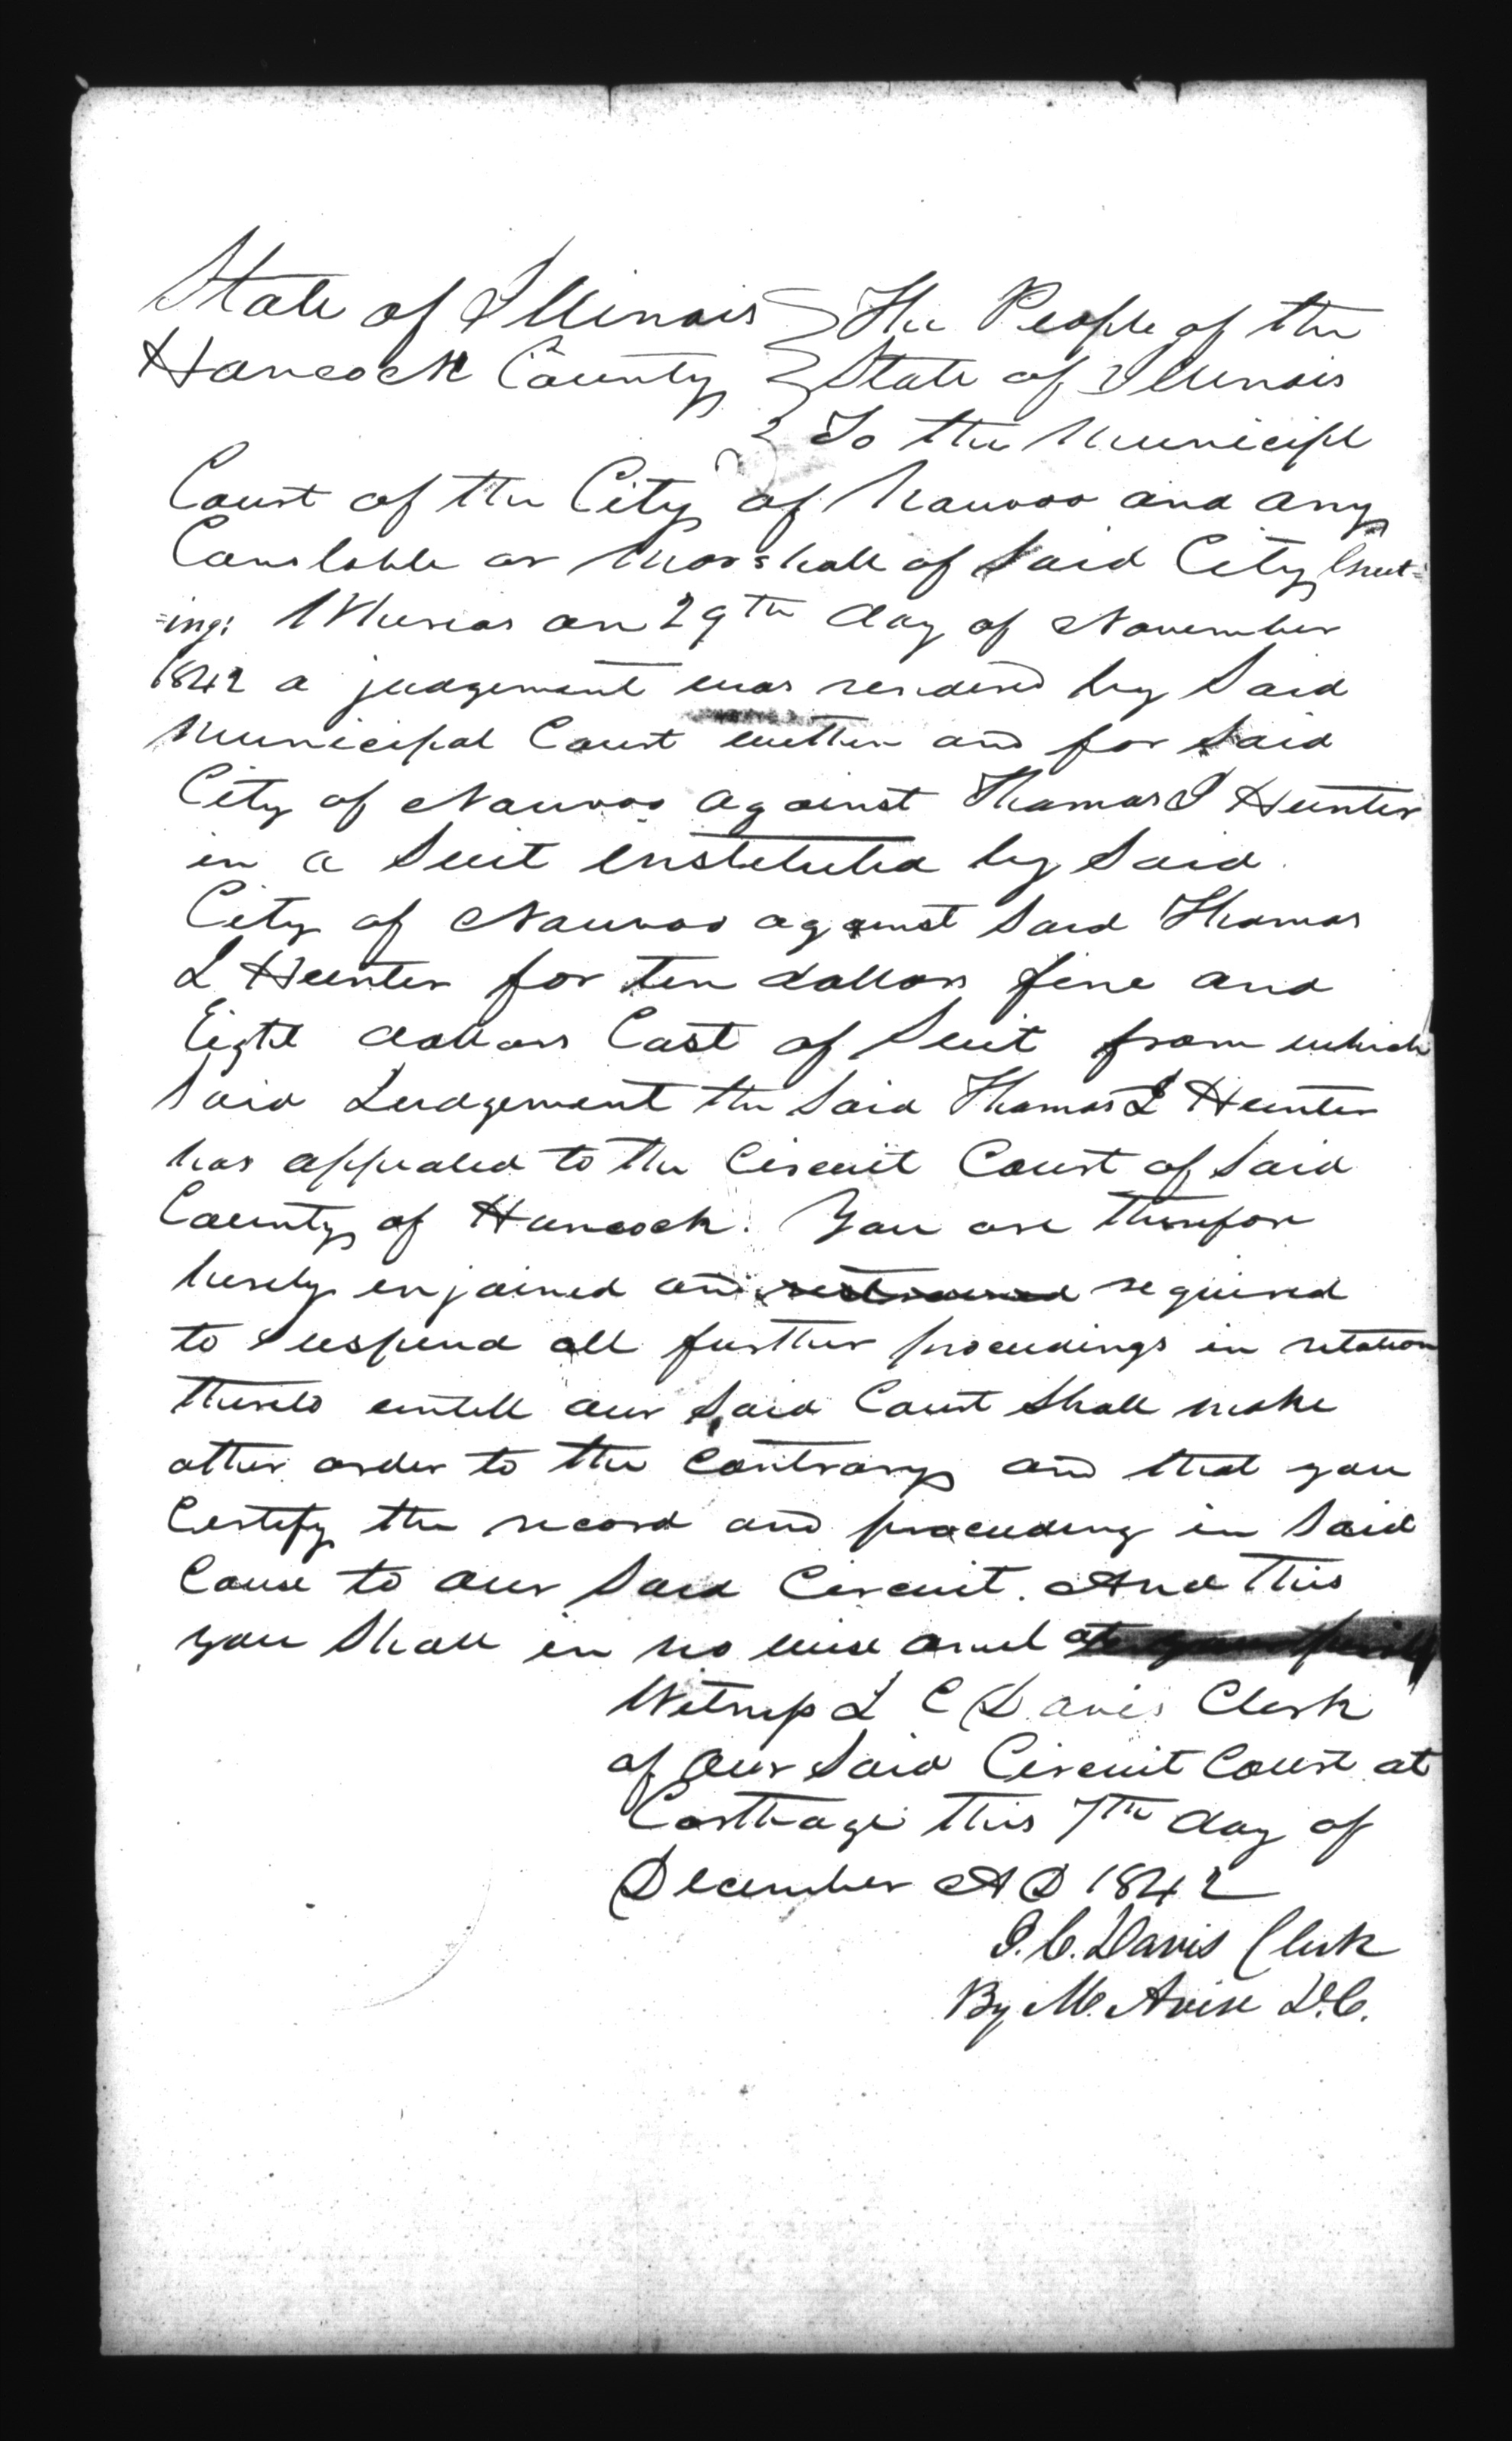 State of Illinois } The People of the
Hancock County } State of Illinois
} To the Municipl
Court of the City of Nauvoo and any
Constable or Marshall of Said City Greet=
=ing: Whereas on 29th day of November
1842 a judgement was rendered by Said
Municipal Court within and for Said
City of Nauvoo against Thomas J Hunter
in a Suit instituted by Said
City of Nauvoo against Said Thomas
J Hunter for ten dollars fine and
Eight dollars Cost of Suit from which
Said Judgement the Said Thomas J Hunter
has appealed to the Circuit Court of Said
County of Hancock. You are therefore
hereby enjoined and restrained required
to Suspend all further proceedings in relation
thereto untill our Said Court Shall make
other order to the Contrary and that you
Certify the record and proceeding in Said
Cause to our Said Circuit. And this
you Shall in no wise omit at your peril
Witness J C Davis Clerk
of Our Said Circuit Court at
Carthage this 7th day of
December A D 1842
J. C. Davis Clerk
By M. Avise D.C.